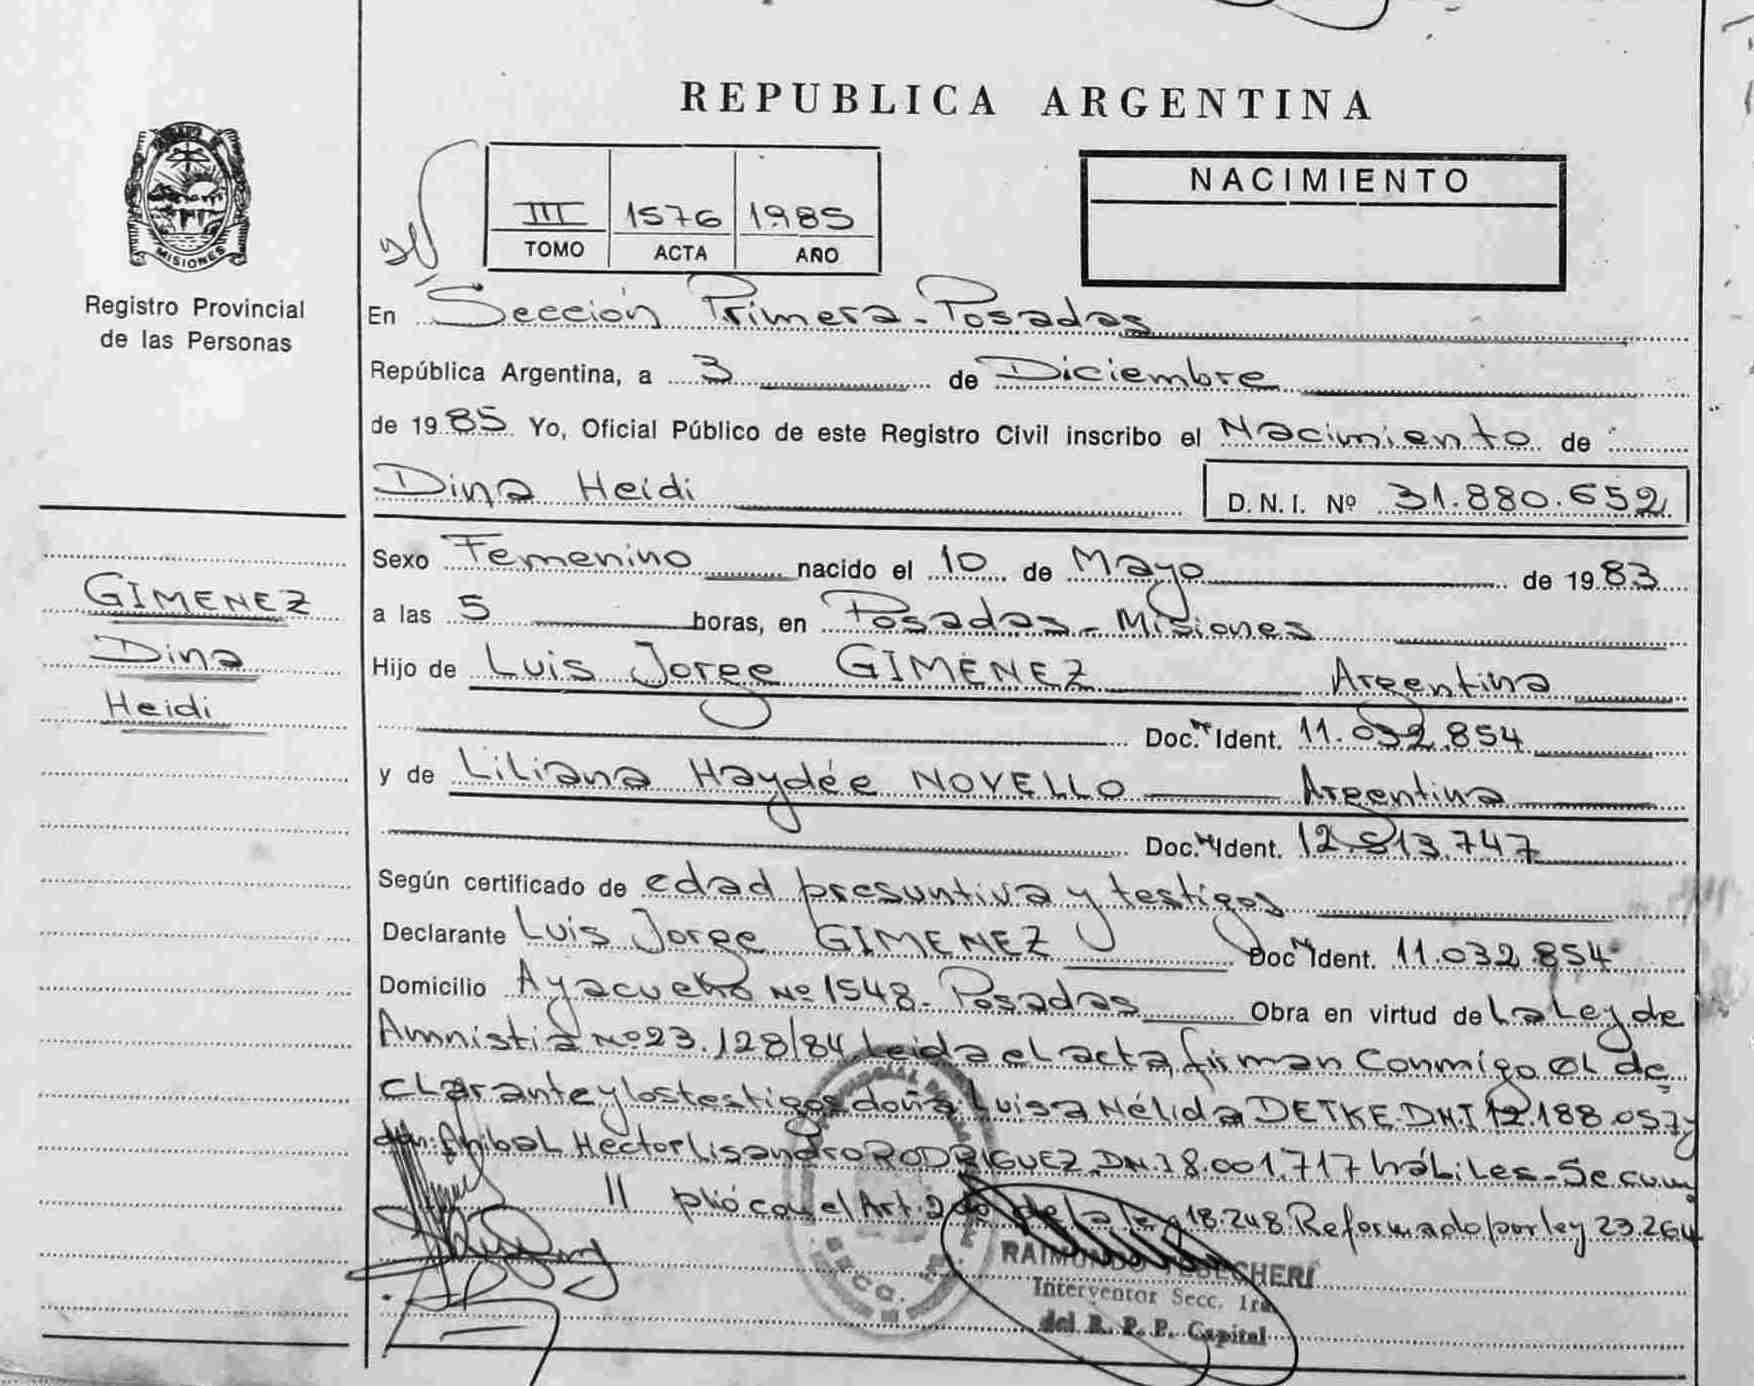 REPUBLICA ARGENTINA
MISIONES
Registro Provincial
de las Personas
III 1576 1985
TOMO ACTA AÑO
NACIMIENTO
En Sección Primera - Posadas
República Argentina, a 3 de Diciembre
de 1985 Yo, Oficial Público de este Registro Civil inscribo el Nacimiento de
Dina Heidi D. N. I. Nº 31.880.652
GIMENEZ
Dina
Heidi
Sexo Femenino nacido el 10 de Mayo de 1983
a las 5 horas, en Posadas - Misiones
Hijo de Luis Jorge GIMENEZ Argentina
Doc. Ident. 11.032.854
y de Liliana Haydée NOVELLO Argentina
Doc. Ident. 12.813.747
Según certificado de edad presuntiva y testigos
Declarante Luis Jorge GIMENEZ Doc Ident. 11.032.854
Domicilio Ayacucho Nº 1548 - Posadas Obra en virtud de La Ley de
Amnistia Nº 23.128/84 Leida el acta, firman conmigo el de
clarante y los testigos doña: Luisa Nélida DETKE DNI 12.188.057 y
don: Anibal Hector Lisandro RODRIGUEZ DNI 8.001.717 hábiles - Se cum
// plió con el Art. 2do de la ley 18.248 Reformado por ley 23.264
RAIMUNDO
Interventor Secc. 1ra
del R. P. P. Capital